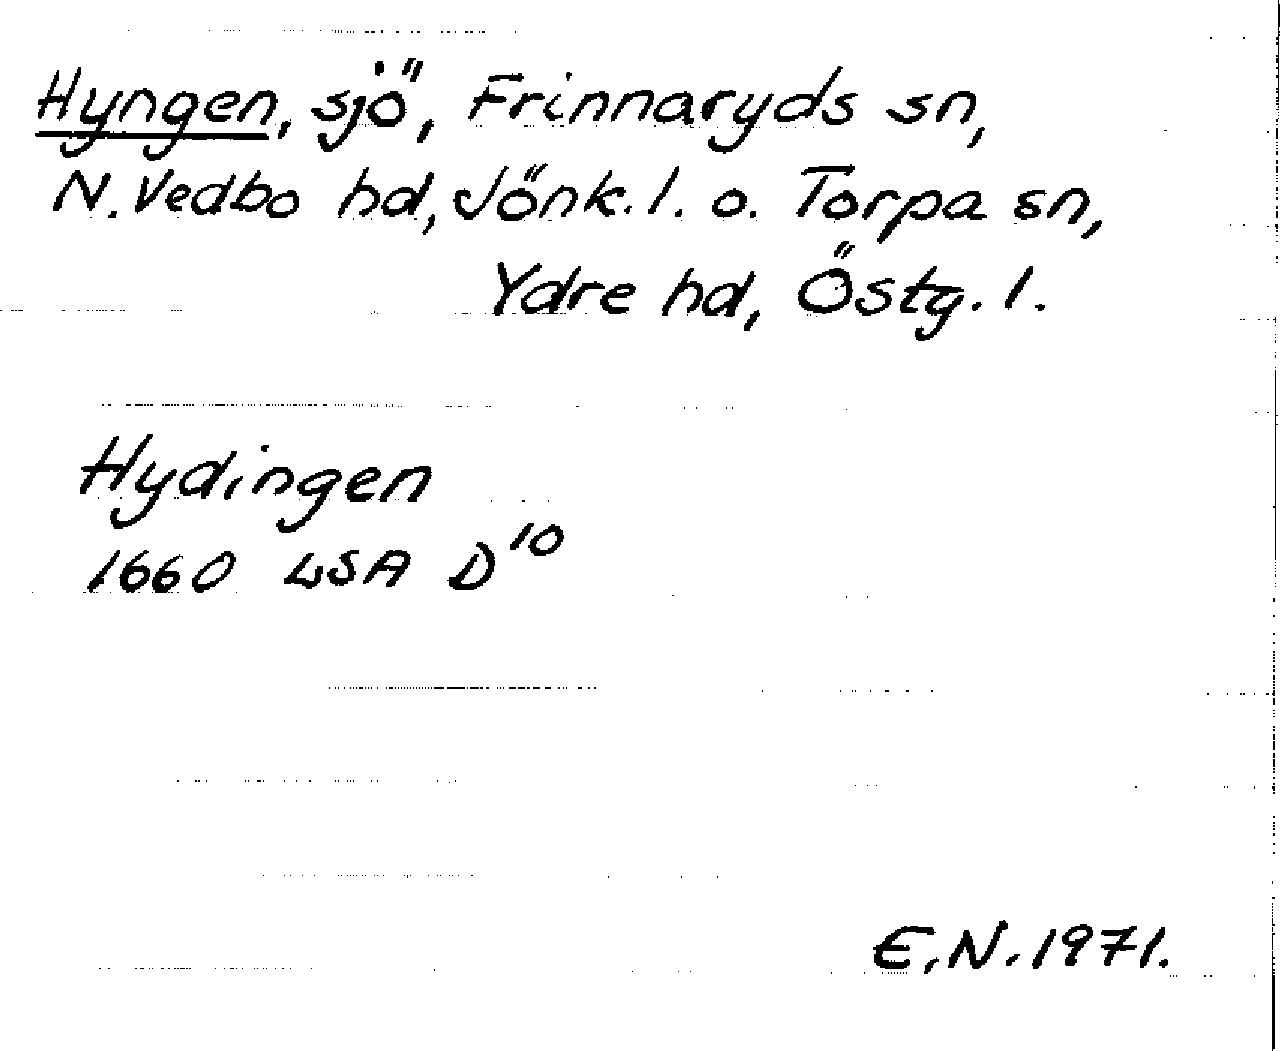 Hyngen, sjö, Frinnaryds sn,
N. Vedbo hd, Jönk. l. o. Torpa sn,
Ydre hd, Östg. l.
Hydingen
1660 LSA D¹⁰
E.N. 1971.